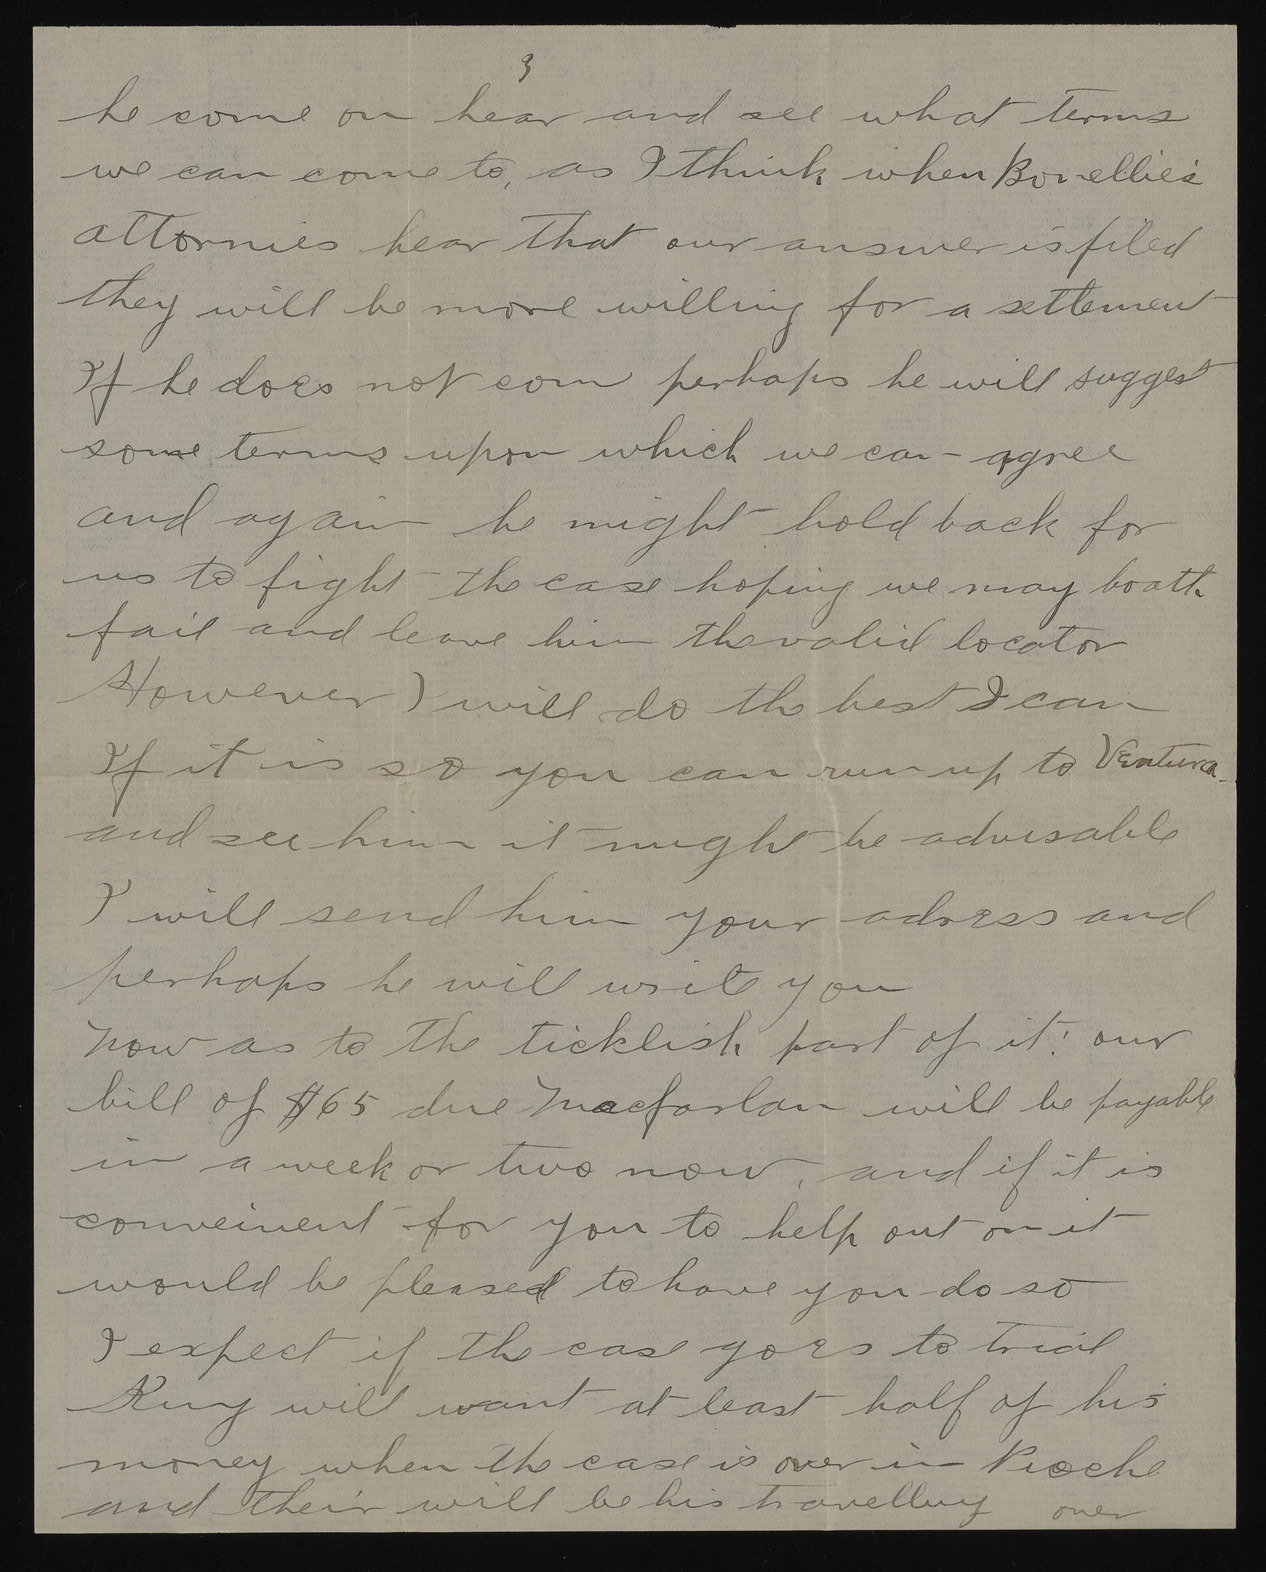 3
he come on hear and see what terms
we can come to, as I think when Bonellie's
attornies hear that our answer is filed
they will be more willing for a settlement
If he does not com perhaps he will suggest
some terms upon which we can agree
and again he might hold back for
us to fight the case hoping we may boath
fail and leave him the valid locator
However I will do the best I can
If it is so you can run up to Ventura
and see him it might be advisable
I will send him your adress and
perhaps he will write you
Now as to the ticklish part of it: our
bill of $65 due Macfarlan will be payable
in a week or two now, and if it is
conveinent for you to help out on it
would be pleased to have you do so
I expect if the case goes to trial
King will want at least half of his
money when the case is over in Pioche
and their will be his travelling over